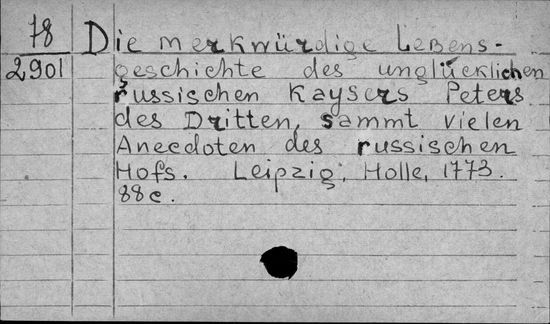 78
2901
Die merkwürdige Lebens-
geschichte des unglücklichen
russischen Kaysers Peters
des Dritten, sammt vielen
Anecdoten des russischen
Hofs. Leipzig, Holle, 1773.
88c.